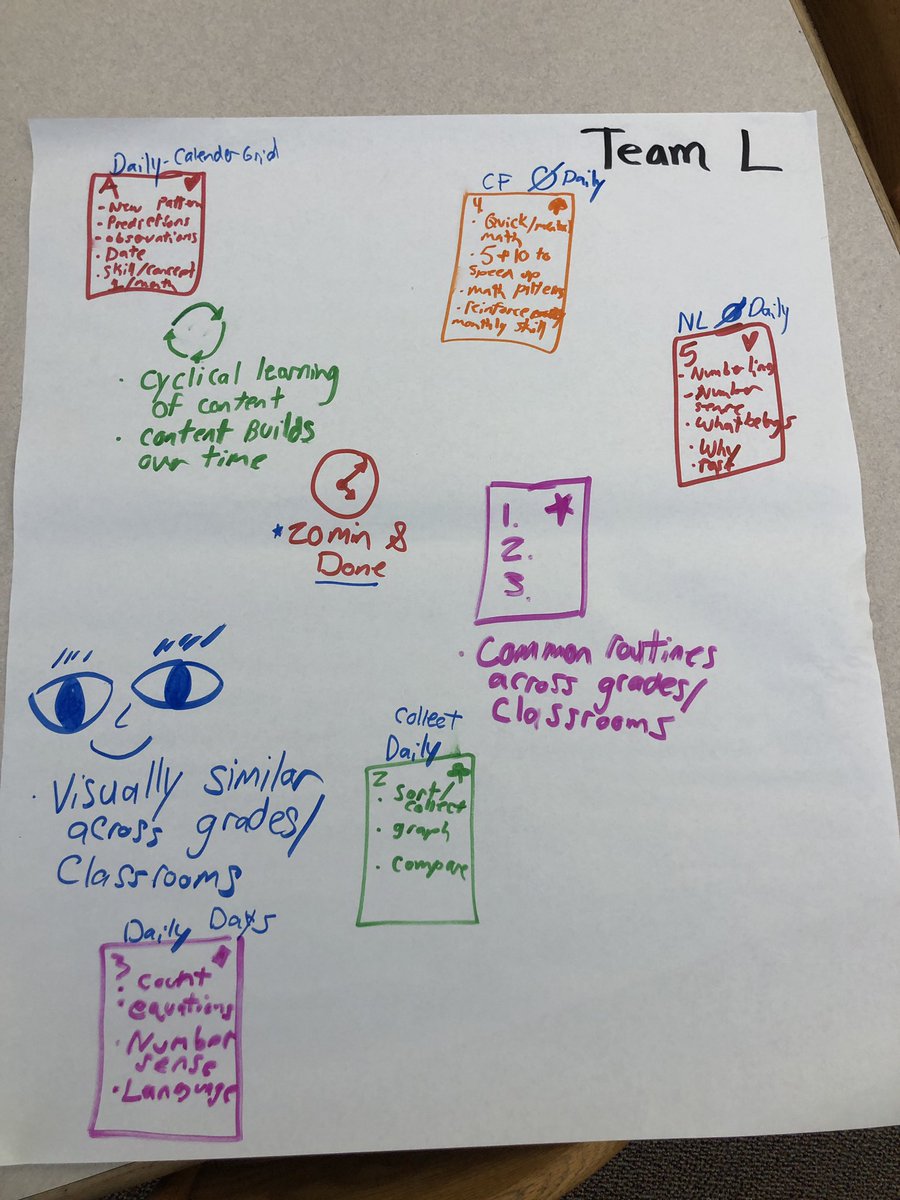 Team L
Daily-Calender Grid
A
- New Pattern
- Predictions
- observations
- Date
- skill/concept
/math
CF Ø Daily
4
• Quick/mental
math
• 5 + 10 to
speed up
• math patterns
• reinforce
monthly skill
NL Ø Daily
5
- Number line
- Number
sense
• What belongs
• Why
• cyclical learning
of content
• content Builds
our time
* 20 min &
Done
1.
2.
3.
• Common routines
across grades/
Classrooms
• Visually similar
across grades/
Classrooms
Collect
Daily
2
• sort/
collect
• graph
• compare
Daily Days
3
• count
• equations
• Number
sense
• Language